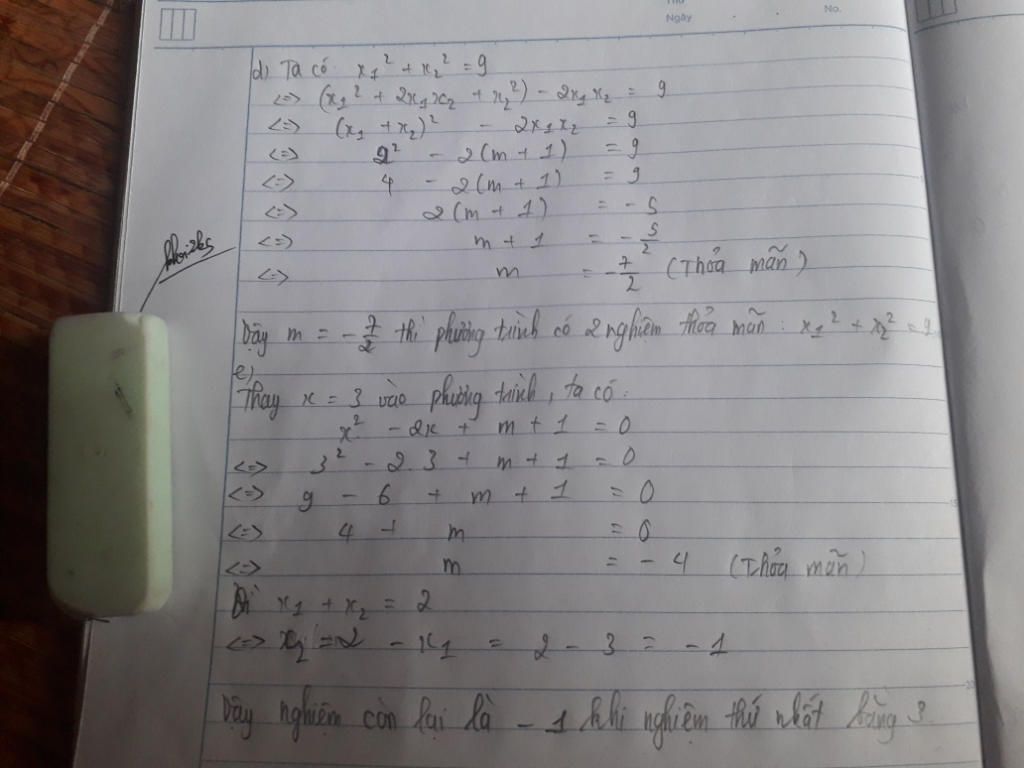 Thứ
Ngày
No.
d) Ta có: x₁² + x₂² = 9
<=> (x₁² + 2x₁x₂ + x₂²) - 2x₁x₂ = 9
<=> (x₁ + x₂)² - 2x₁x₂ = 9
<=> 2² - 2(m + 1) = 9
<=> 4 - 2(m + 1) = 9
<=> 2(m + 1) = - 5
<=> m + 1 = - 5/2
<=> m = - 7/2 (Thỏa mãn)
Vậy m = - 7/2 thì phương trình có 2 nghiệm thỏa mãn : x₁² + x₂² = 9
e)
Thay x = 3 vào phương trình, ta có:
x² - 2x + m + 1 = 0
<=> 3² - 2.3 + m + 1 = 0
<=> 9 - 6 + m + 1 = 0
<=> 4 + m = 0
<=> m = - 4 (Thỏa mãn)
x₁ + x₂ = 2
<=> x₂ = 2 - x₁ = 2 - 3 = - 1
Vậy nghiệm còn lại là - 1 khi nghiệm thứ nhất bằng 3.